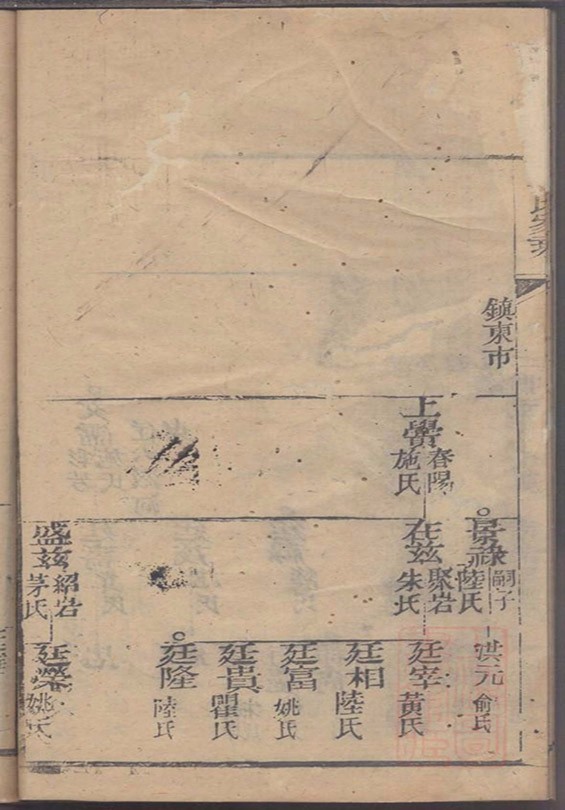 氏家
鎮東市
上學
春陽
施氏
景祿
嗣子
陸氏
在兹
聚岩
朱氏
盛兹
紹岩
茅氏
洪元
俞氏
廷宰
黃氏
廷相
陸氏
廷富
姚氏
廷貴
瞿氏
廷隆
陸氏
廷榮
姚氏